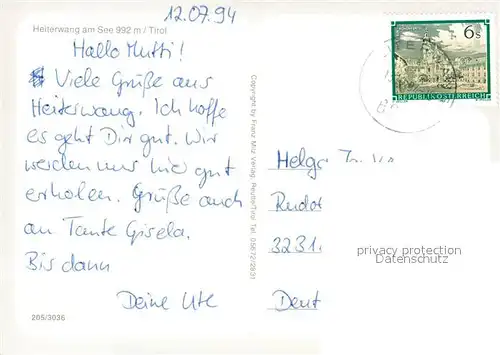 12.07.94
Heiterwang am See 992 m / Tirol
Hallo Mutti!
Viele Grüße aus
Heiterwang. Ich hoffe
es geht Dir gut. Wir
werden uns hier gut
erholen. Grüße auch
an Tante Gisela.
Bis dann
Deine Ute
205/3036
Copyright by Franz Milz Verlag, Reutte/Tirol Tel. 05672/2831
6s
REPUBLIK ÖSTERREICH
Helga
Rudo
3231
Deut
privacy protection
Datenschutz